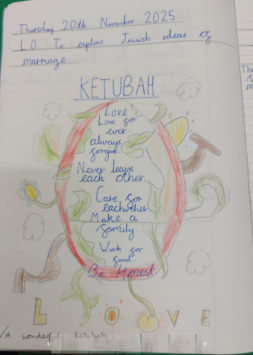 Thursday 20th November 2025
L.O To explore Jewish ideas of
marriage.
KETUBAH
Love
Love for
ever
always
forgive
Never leave
each other.
Care for
eachother
Make a
family
Work for
food
Be Honest
L O V E
A wonderful Ketubah